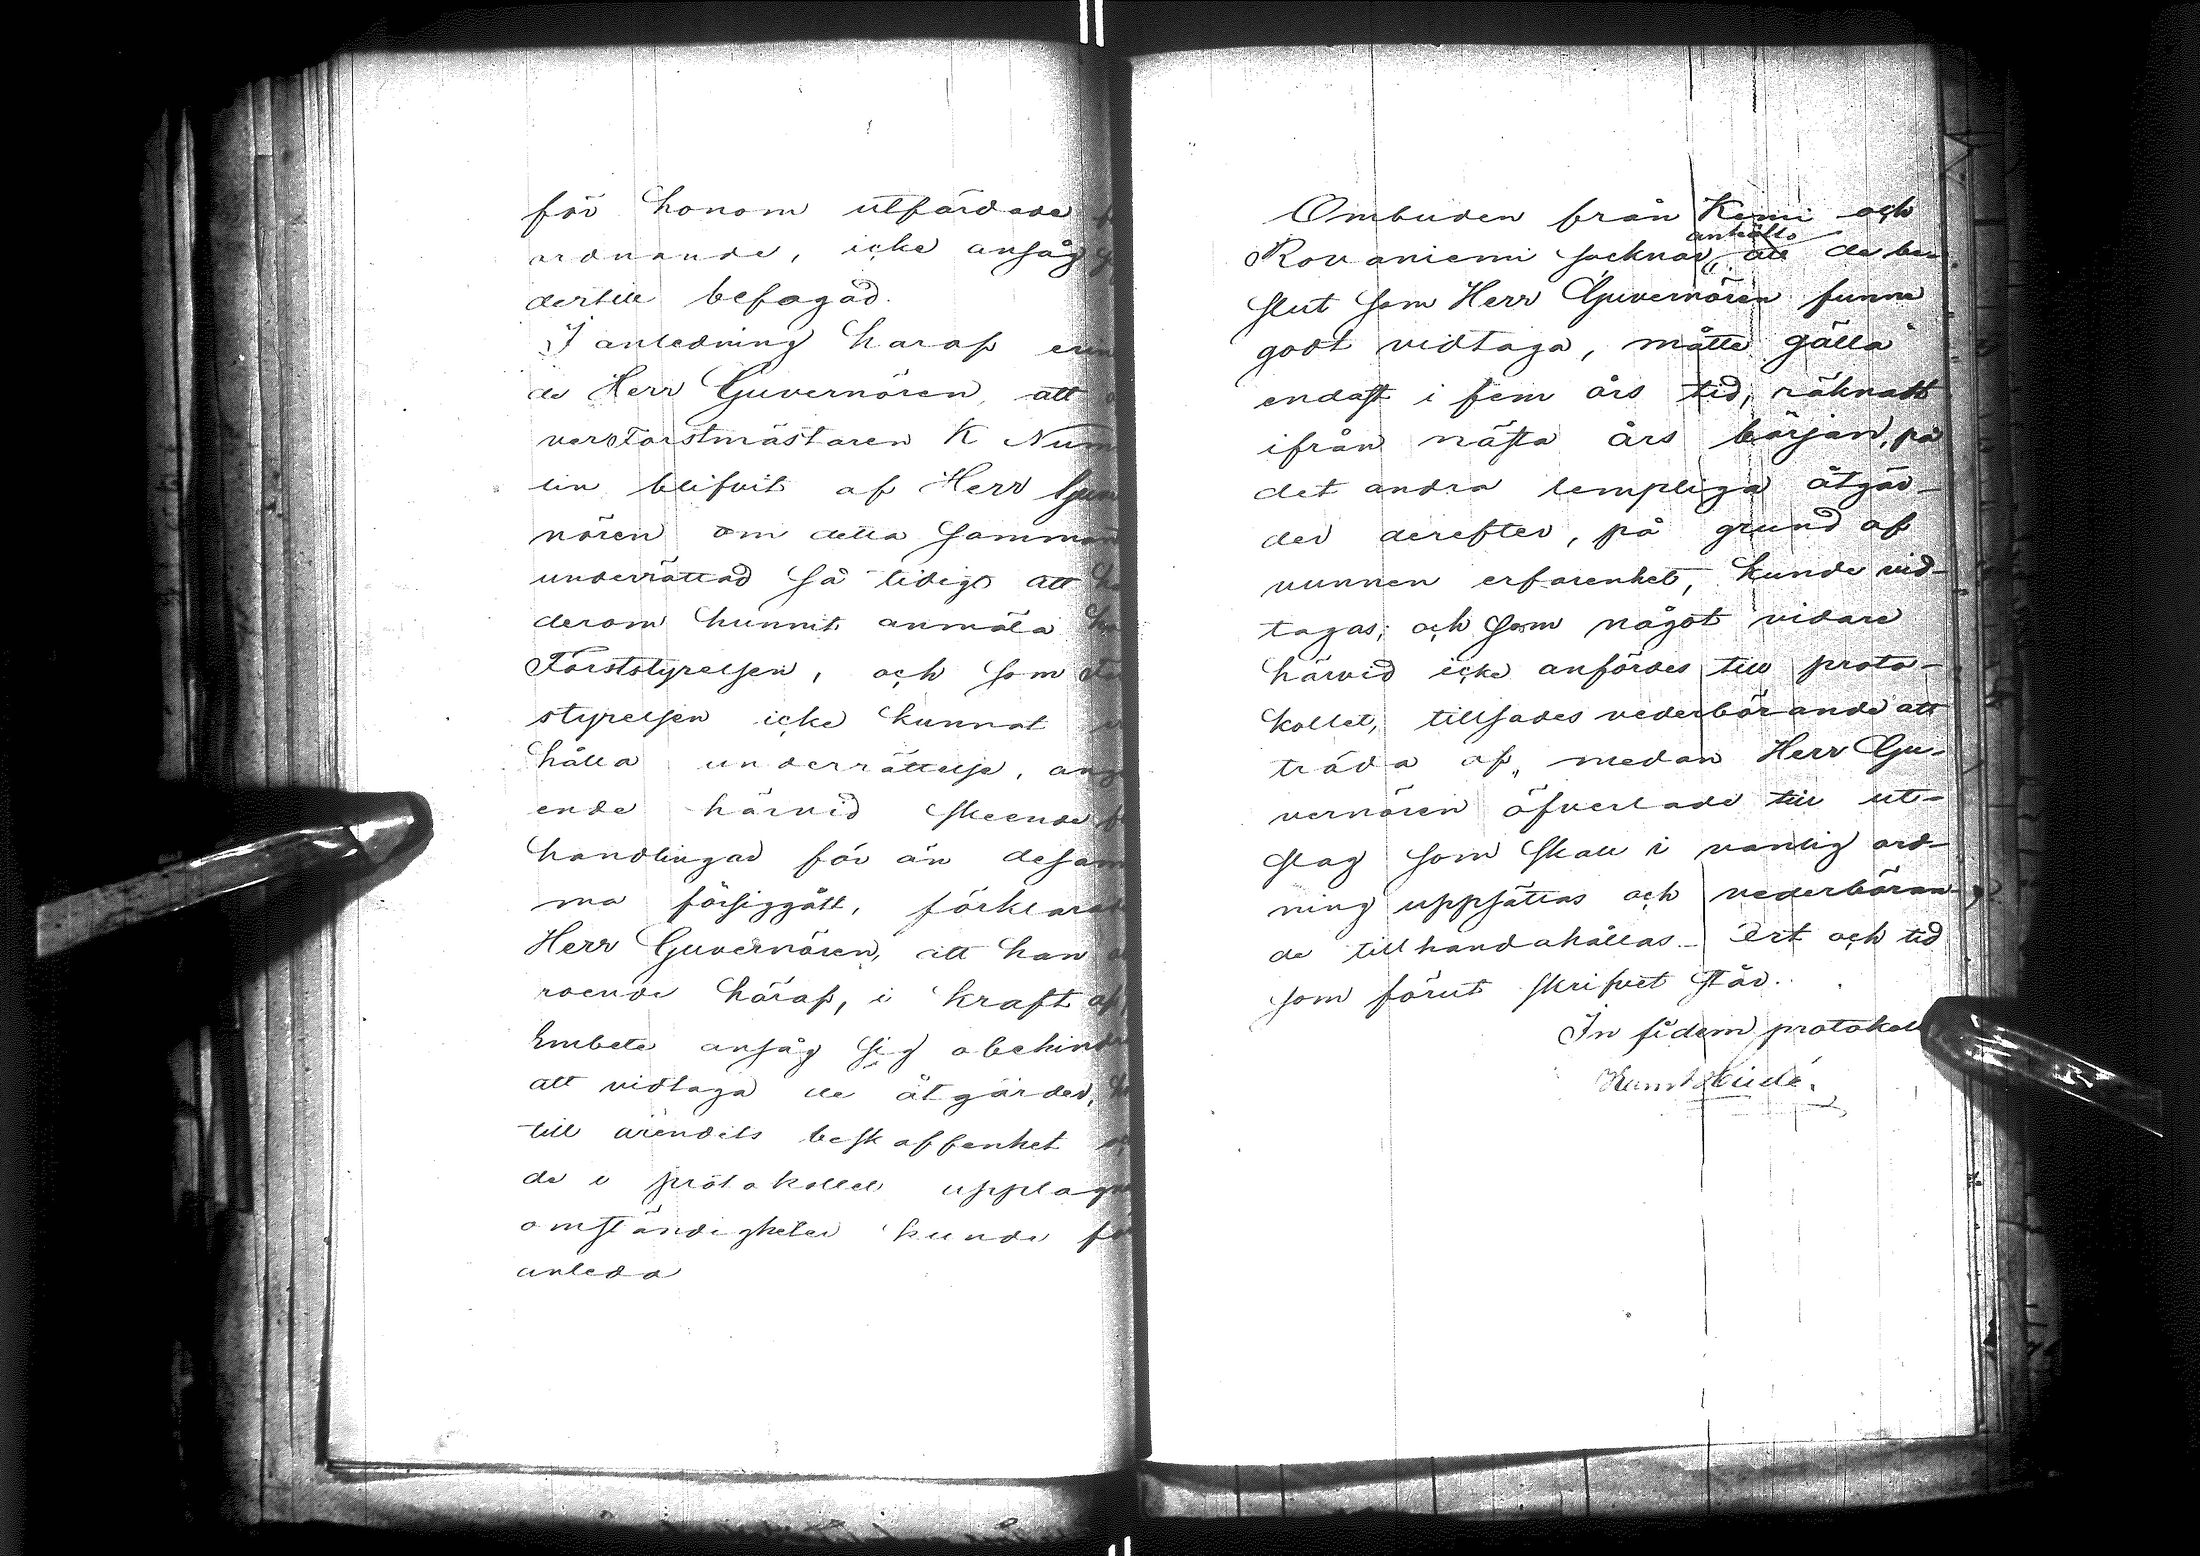 för honom utfärdade
ordnande, icke ansåg
dertill befogad.
I anledning häraf erin
de Herr Guvernören, att
verforstmästaren K Num
lin blifvit af Herr Guver
nören om detta samman
underrättad så tidigt att
derom hunnit anmäla
Forststyrelsen, och som
styrelsen icke kunnat
hålla underrättelse, ang
ende härvid skeende
handlingar för än desam
ma försiggått, förklarad
Herr Guvernören, att han
roende häraf, i kraft af
Embete ansåg sig obehind
att vidtaga de åtgärder,
till ärendets beskaffenhet
de i protokollet upptagn
omständigheter kunde
anleda
Ombuden från Kemi och
anhöllo
Rovaniemi socknar, att de be-
slut som Herr Guvernören funne
godt vidtaga, måtte gälla
endast i fem års tid, räknadt
ifrån nästa års början, på
det andra lempliga åtgär-
der derefter, på grund af
vunnen erfarenhet, kunde vid-
tagas; och som något vidare
härvid icke anfördes till proto-
kollet, tillsades vederbörande att
träda af, medan Herr Gu-
vernören öfverlade till ut-
slag som skall i vanlig ord-
ning uppsättas och vederböran-
de tillhandahållas. Ort och tid
som förut skrifvet står.
In fidem protokoll